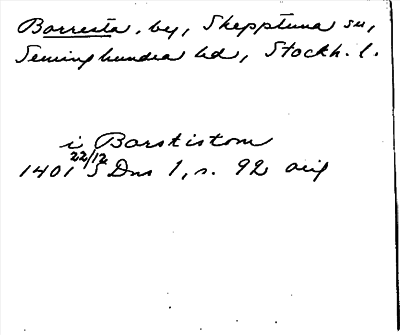 Borresta, by, Skepptuna sn,
Seminghundra hd, Stockh. l.
i Barstistom
1401 22/12 SDns 1, s. 92 orig